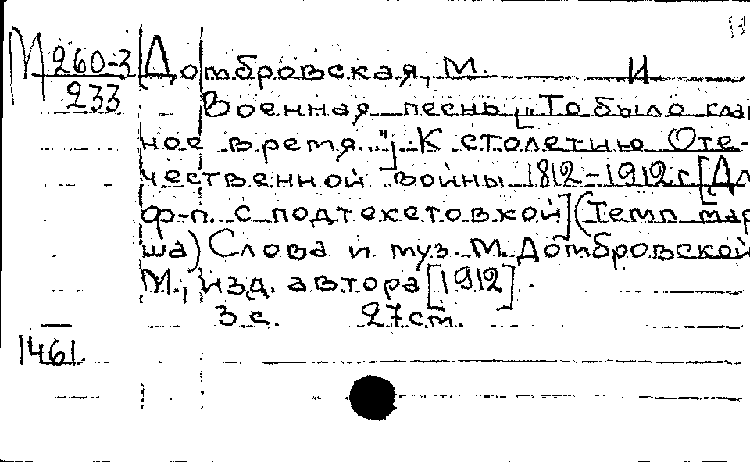 М 260-3 Домбровская, М. И
233 Военная песнь ["То было слав
ное время..."] К столетию Оте-
чественной войны 1812-1912 г [Дл
ф-п. с подтекстовкой] (Темп мар
ша) Слова и муз. М. Домбровской
М., изд. автора [1912].
3 с. 27 см.
1461